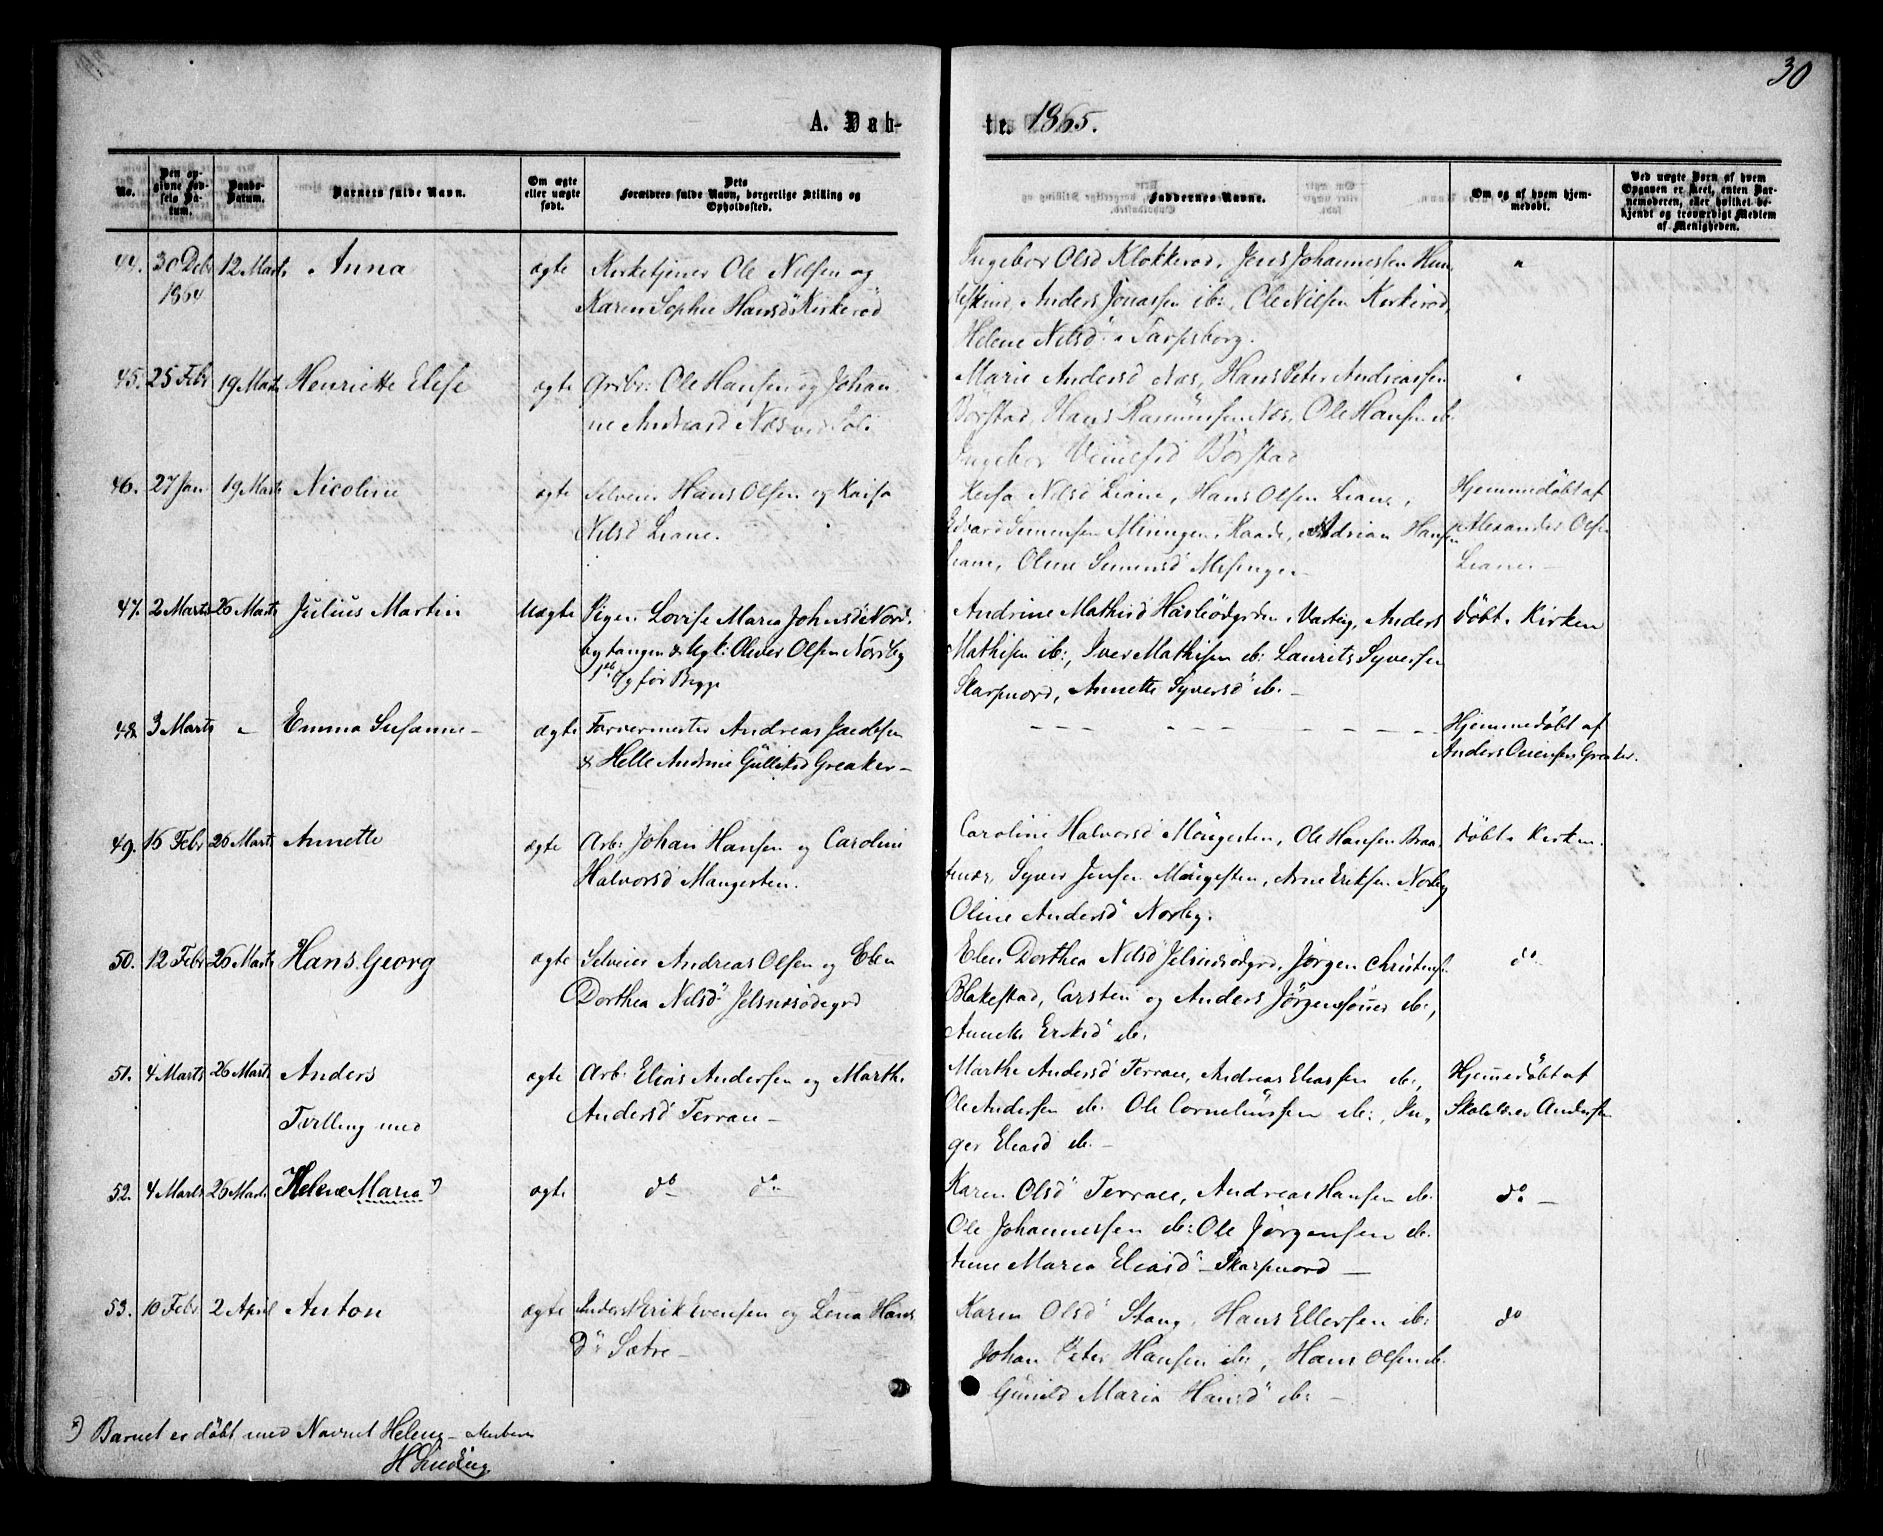 30
A. Dåb-
te. 1865.
No.
Den opgivne Fødsels Datum.
Daabs-Datum.
Barnets fulde Navn.
Om ægte eller uægte født.
Dets Forældres fulde Navn, borgerlige Stilling og Opholdssted.
Faddernes Navne.
Om og af hvem hjemmedøbt.
Ved uægte Børn af hvem Opgaven er skeet, enten Barnemoderen, eller hvilket bekjendt og troværdigt Medlem af Menigheden.
44. 30 Debr 12 Marts Anna ægte Kirketjener Ole Nilsen og
1864 Karen Sophie Hansd Kirkerød
Ingebor Olsd Klokkerød, Jens Johannessen Hun
Anders Jonassen ib:, Ole Nilsen Kirkerød,
Helene Nilsd Sarpsborg.
45. 25 Febr 19 Marts Henriette Elise ægte Grdbr: Ole Hansen og Johan
ne Andreasd Næs ved Soli
Marie Andersd Næs, Hans Peter Andreassen
Børstad, Hans Rasmussen Næs, Ole Hansen ib.
Ingebor Børstad
46. 27 Jan 19 Marts Nicoline ægte Selveier Hans Olsen og Kaisa
Nilsd Liane.
Kaisa Nilsd Liane, Hans Olsen Liane,
Edvard Simensen Misingen, Raade, Adrian Hansen
Liane, Oline Simensd Misingen –
Hjemmedøbt af
Alexander Olsen
Liane –
47. 2 Marts 26 Marts Julius Martin Uægte Pigen Lovise Maria Johnsd Nord
bytangen & Ugk: Oliver Olsen Norby
1ste Gg for Begge
Andrine Mathisd Hasleødgrden i Varteig, Anders
Mathisen ib:, Iver Mathisen ib: Laurits Syversen
Skarpnord, Annette Syversd ib. –
døbt i Kirken
48. 3 Marts – Emma Susanne – ægte Farvermester Andreas Jacobsen
& Helle Andrine Gulliksd Greaker –
– – – – – – – – –
Hjemmedøbt af
Anders Greaker.
49. 16 Febr 26 Marts Annette ægte Arb: Johan Hansen og Caroline
Halvorsd Mangersten.
Caroline Halvorsd Mangersten, Ole Hansen Braa
tnæs, Syver Jensen Mangesten, Arne Eriksen Norby
Oline Andersd Norby.
døbt i Kirken.
50. 12 Febr 26 Marts Hans Georg ægte Selveier Andreas Olsen og Elen
Dorthea Nilsd Jelsnesødegrd
Elen Dorthea Nilsd Jelsnesødgrd, Jørgen Christensen
Blakestad, Carsten og Anders Jørgenssønner ib:,
Annette Eriksd ib:
do
51. 4 Marts 26 Marts Anders ægte Arb: Elias Andersen og Marthe
Tvilling med Andersd Terrace –
Marthe Andersd Terrace, Andreas Eliassen ib:,
Ole Andersen ib: Ole Corneliussen ib:, In,
ger Eliasd ib. –
Hjemmedøbt af
Skolelærer Andersen
52. 4 Marts 26 Marts Helene Maria *) ægte do – do –
Karen Olsd Terrace, Andreas Hansen ib.
Ole Johannessen ib: Ole Jørgensen ib.
Anne Maria Eliasd – Skarpnord –
do –
53. 10 Febr 2 April Anton ægte Inderst Erik Evensen og Lena Hans
Dr Sætre –
Karen Olsd Stang, Hans Ellefsen ib:
Johan Peter Hansen ib:, Hans Olsen ib.
Gunild Maria Hansd ib: –
do
*) Barnet er døbt med Navnet Helene –